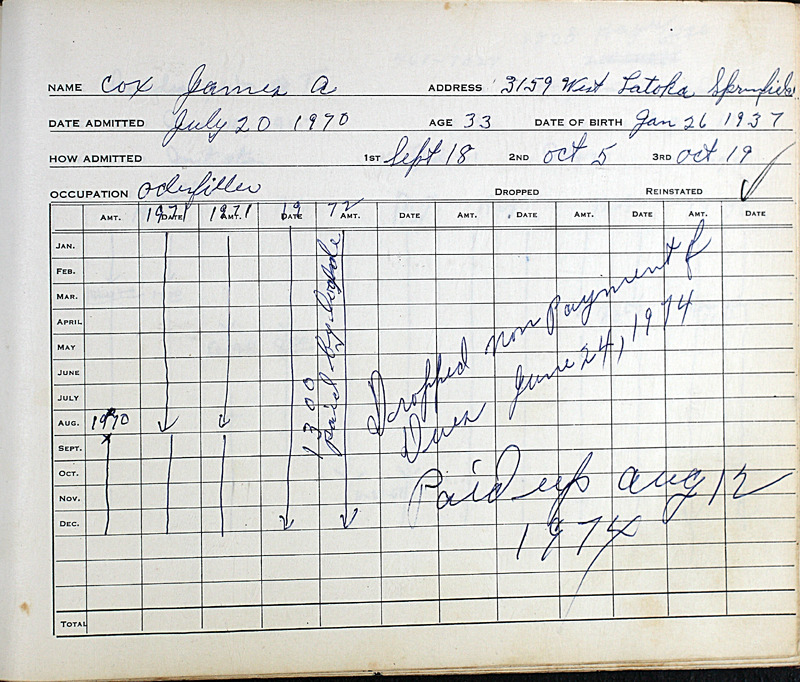 NAME Cox James A ADDRESS 3159 West Latoka Springfield
DATE ADMITTED July 20 1970 AGE 33 DATE OF BIRTH Jan 26 1937
HOW ADMITTED 1ST Sept 18 2ND Oct 5 3RD Oct 19
OCCUPATION Oderfiller DROPPED REINSTATED
1971 1971 19 72
AMT. DATE AMT. DATE AMT. DATE AMT. DATE AMT. DATE AMT. DATE
JAN.
FEB.
MAR.
APRIL
MAY
JUNE
JULY
AUG. 1970
SEPT.
OCT.
NOV.
DEC.
TOTAL
13 00
paid by
Dropped non Payment of
Dues June 24, 1974
Paid up Aug 12
1974